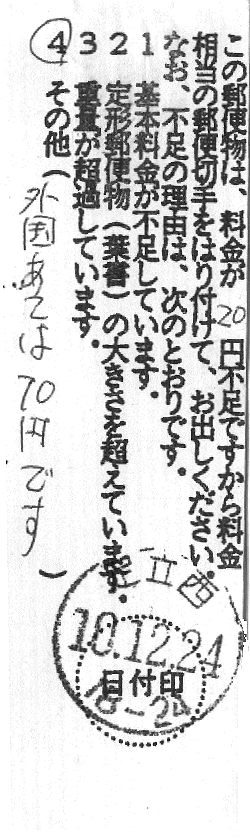 この郵便物は、料金が 20 円不足ですから料金
相当の郵便切手をはり付けて、お出しください。
なお、不足の理由は、次のとおりです。
1 基本料金が不足しています。
2 定形郵便物(葉書)の大きさを超えています。
3 重量が超過しています。
4 その他(外国あては70円です)
足立西
10.12.24
18-24
日付印